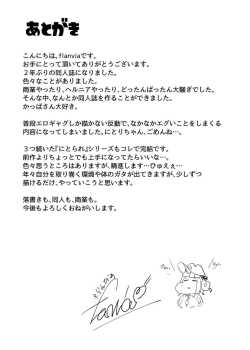 あとがき
こんにちは、flanviaです。
お手にとって頂いてありがとうございます。
２年ぶりの同人誌になりました。
色々なことがありました。
商業やったり、ヘルニアやったり、どったんばったん大騒ぎでした。
そんな中、なんとか同人誌を作ることができました。
かっぱさん大好き。
普段エロギャグしか描かない反動で、なかなかエグいことをしまくる
内容になってしまいました。にとりちゃん、ごめんね…。
３つ続いた『にとられ』シリーズもコレで完結です。
前作よりちょっとでも上手になってたらいいな…。
色々思うところはありますが、精進します…ひゅえぇ…
年々自分を取り巻く環境や体のガタが出てきますが、少しずつ
描けるだけ、やっていこうと思います。
落書きも、同人も、商業も。
今後もよろしくおねがいします。